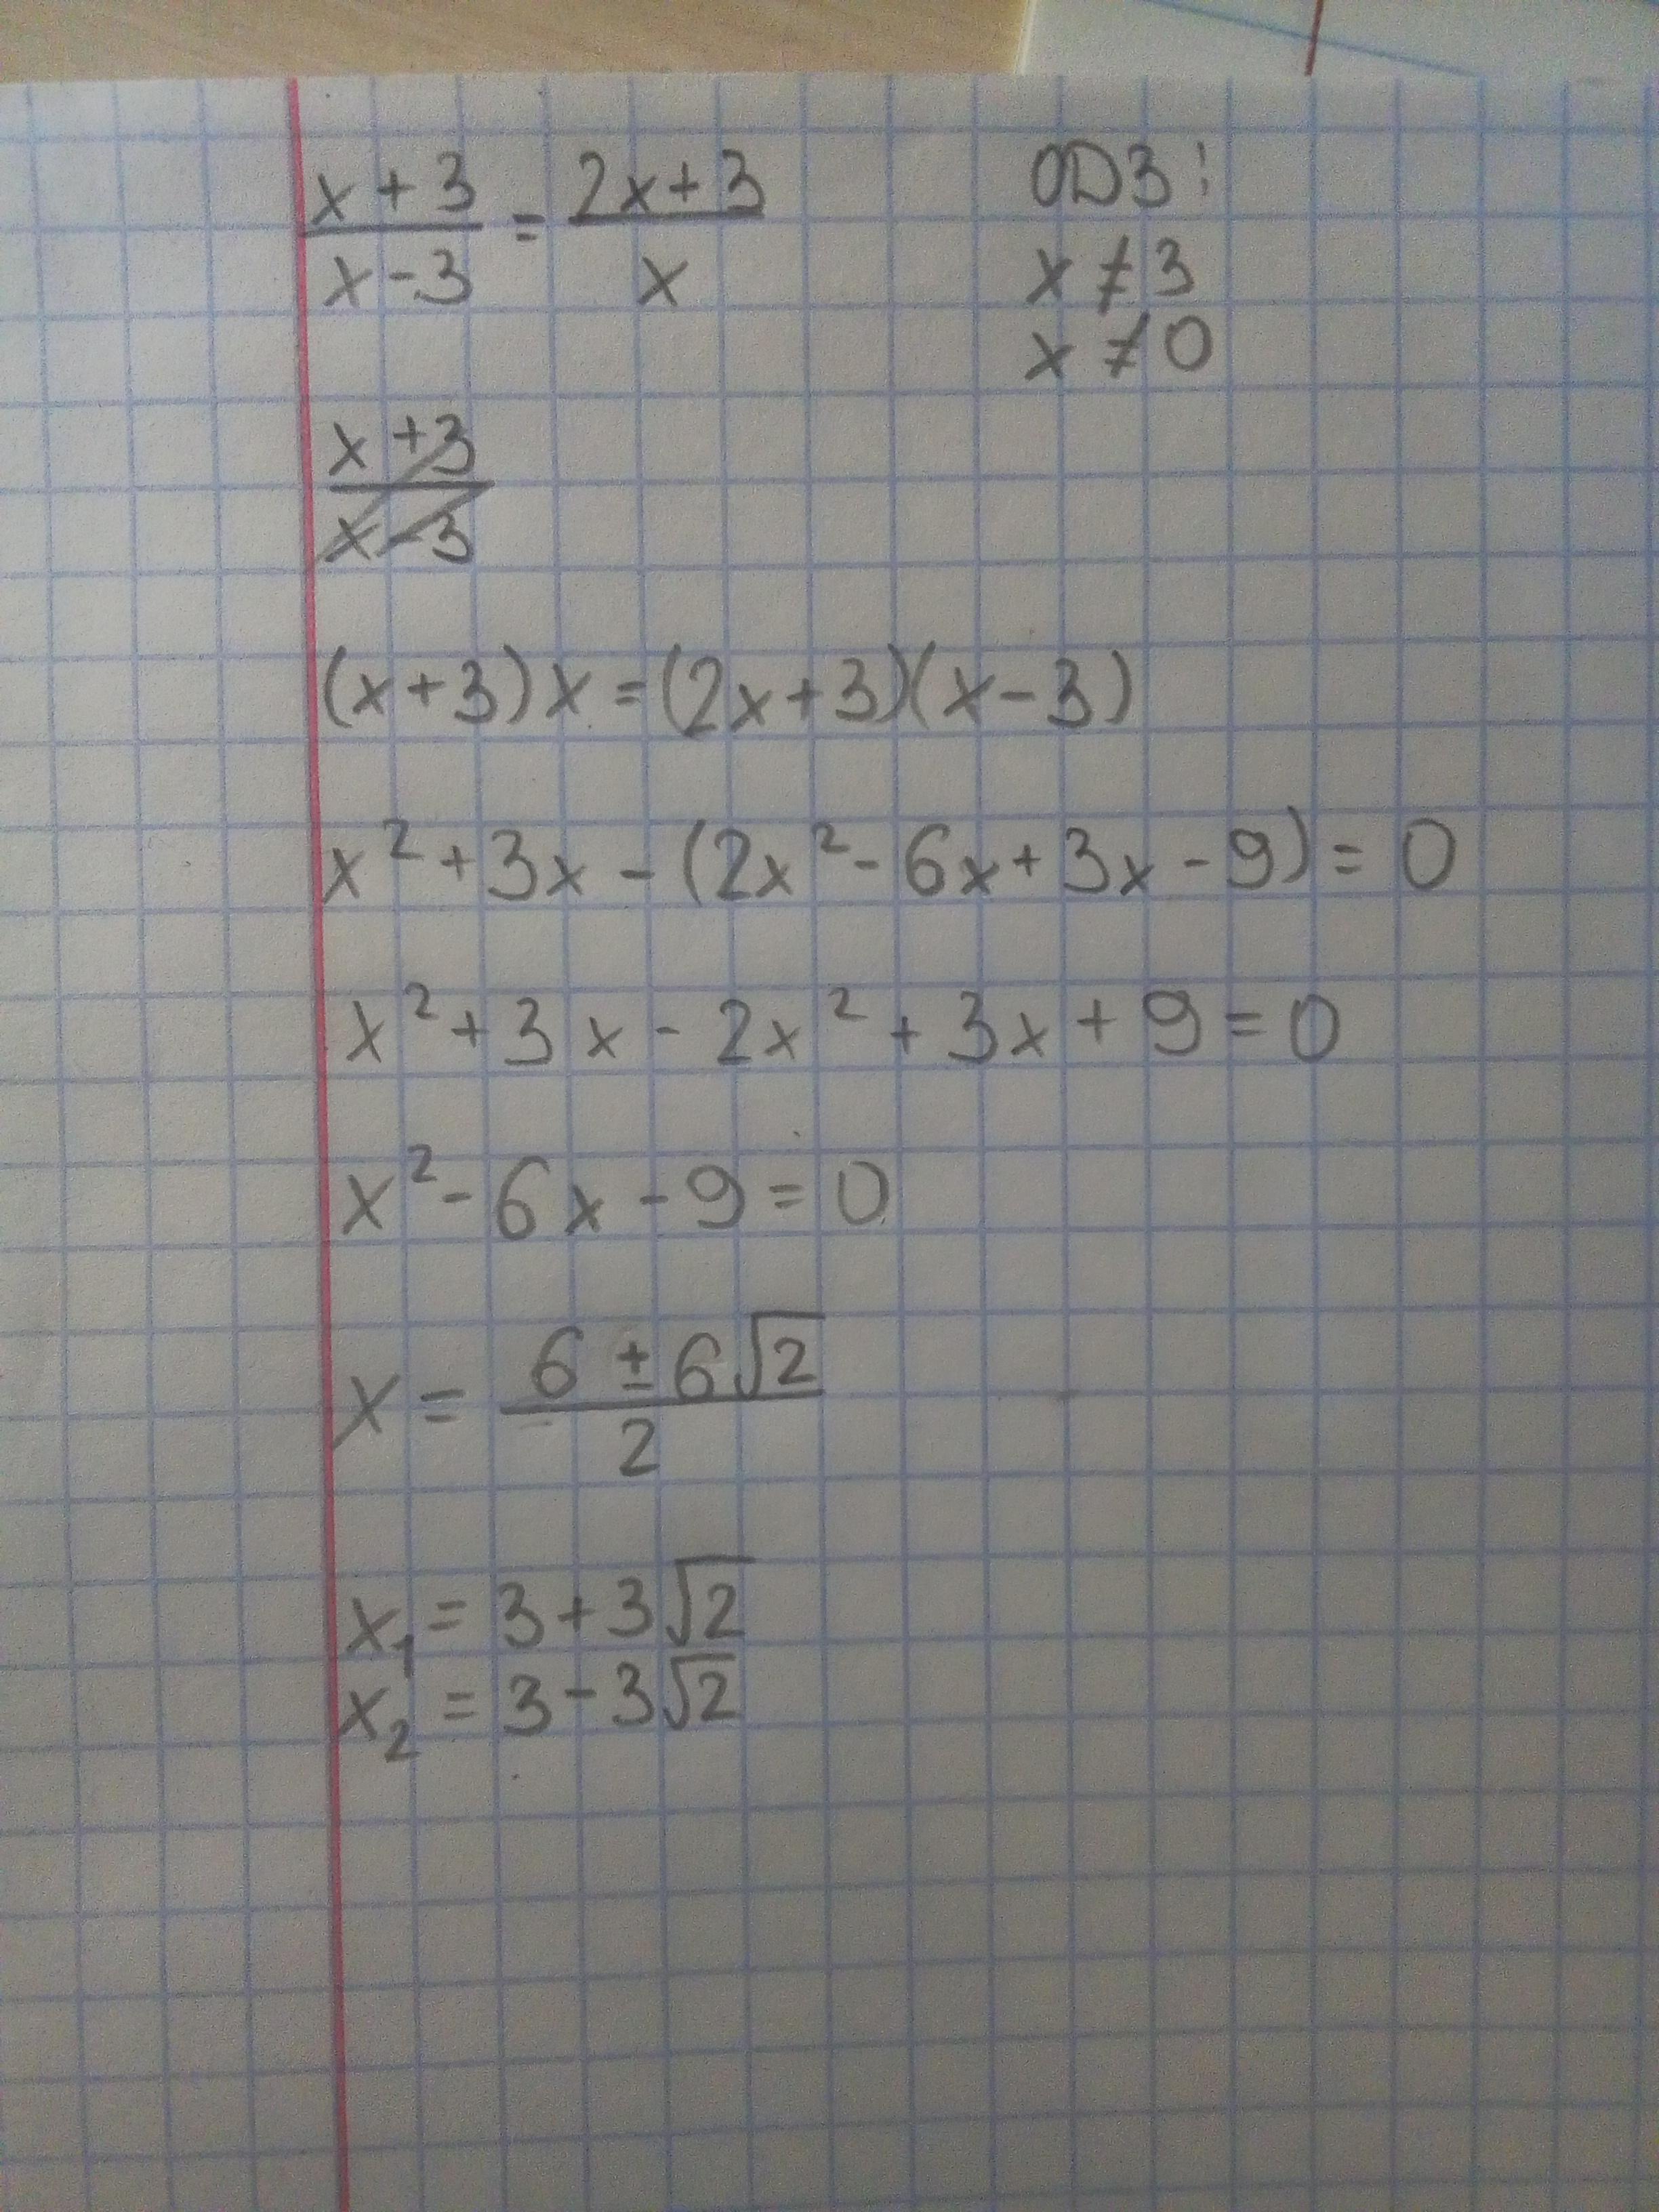 (x + 3)/(x - 3) = (2x + 3)/x
ОДЗ:
x ≠ 3
x ≠ 0
(x + 3)x = (2x + 3)(x - 3)
x² + 3x - (2x² - 6x + 3x - 9) = 0
x² + 3x - 2x² + 3x + 9 = 0
x² - 6x - 9 = 0
x = (6 ± 6√2)/2
x₁ = 3 + 3√2
x₂ = 3 - 3√2